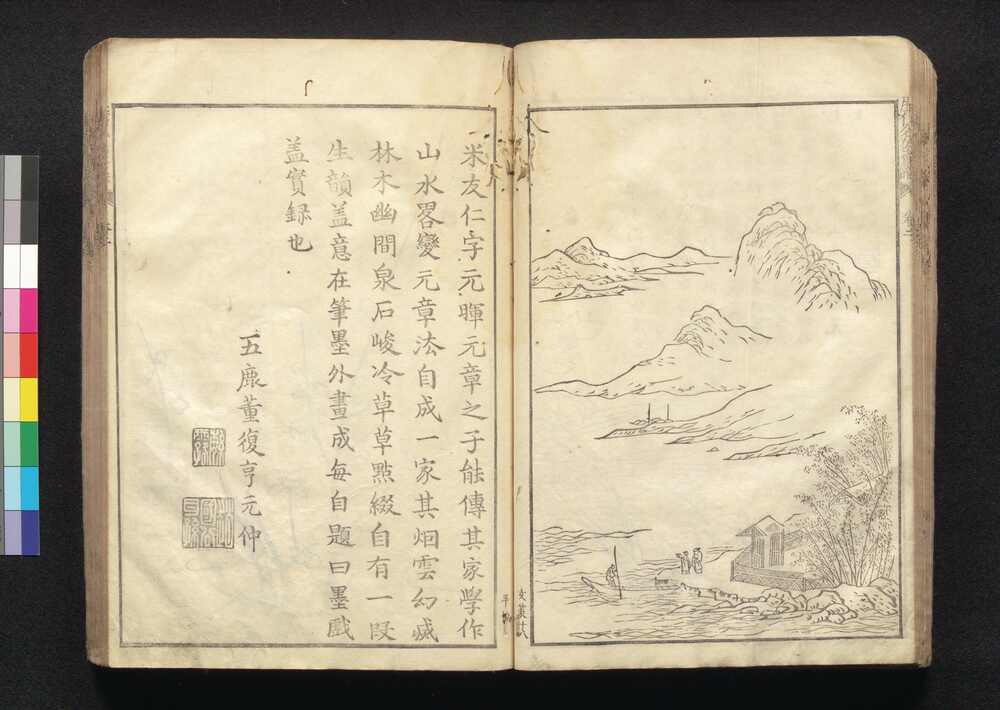 米友仁字元暉元章之子能傳其家學作
山水畧變元章法自成一家其烟雲幻滅
林木幽間泉石峻冷草草點綴自有一段
生韻盖意在筆墨外畫成每自題曰墨戲
盖實録也
五鹿董復亨元仲